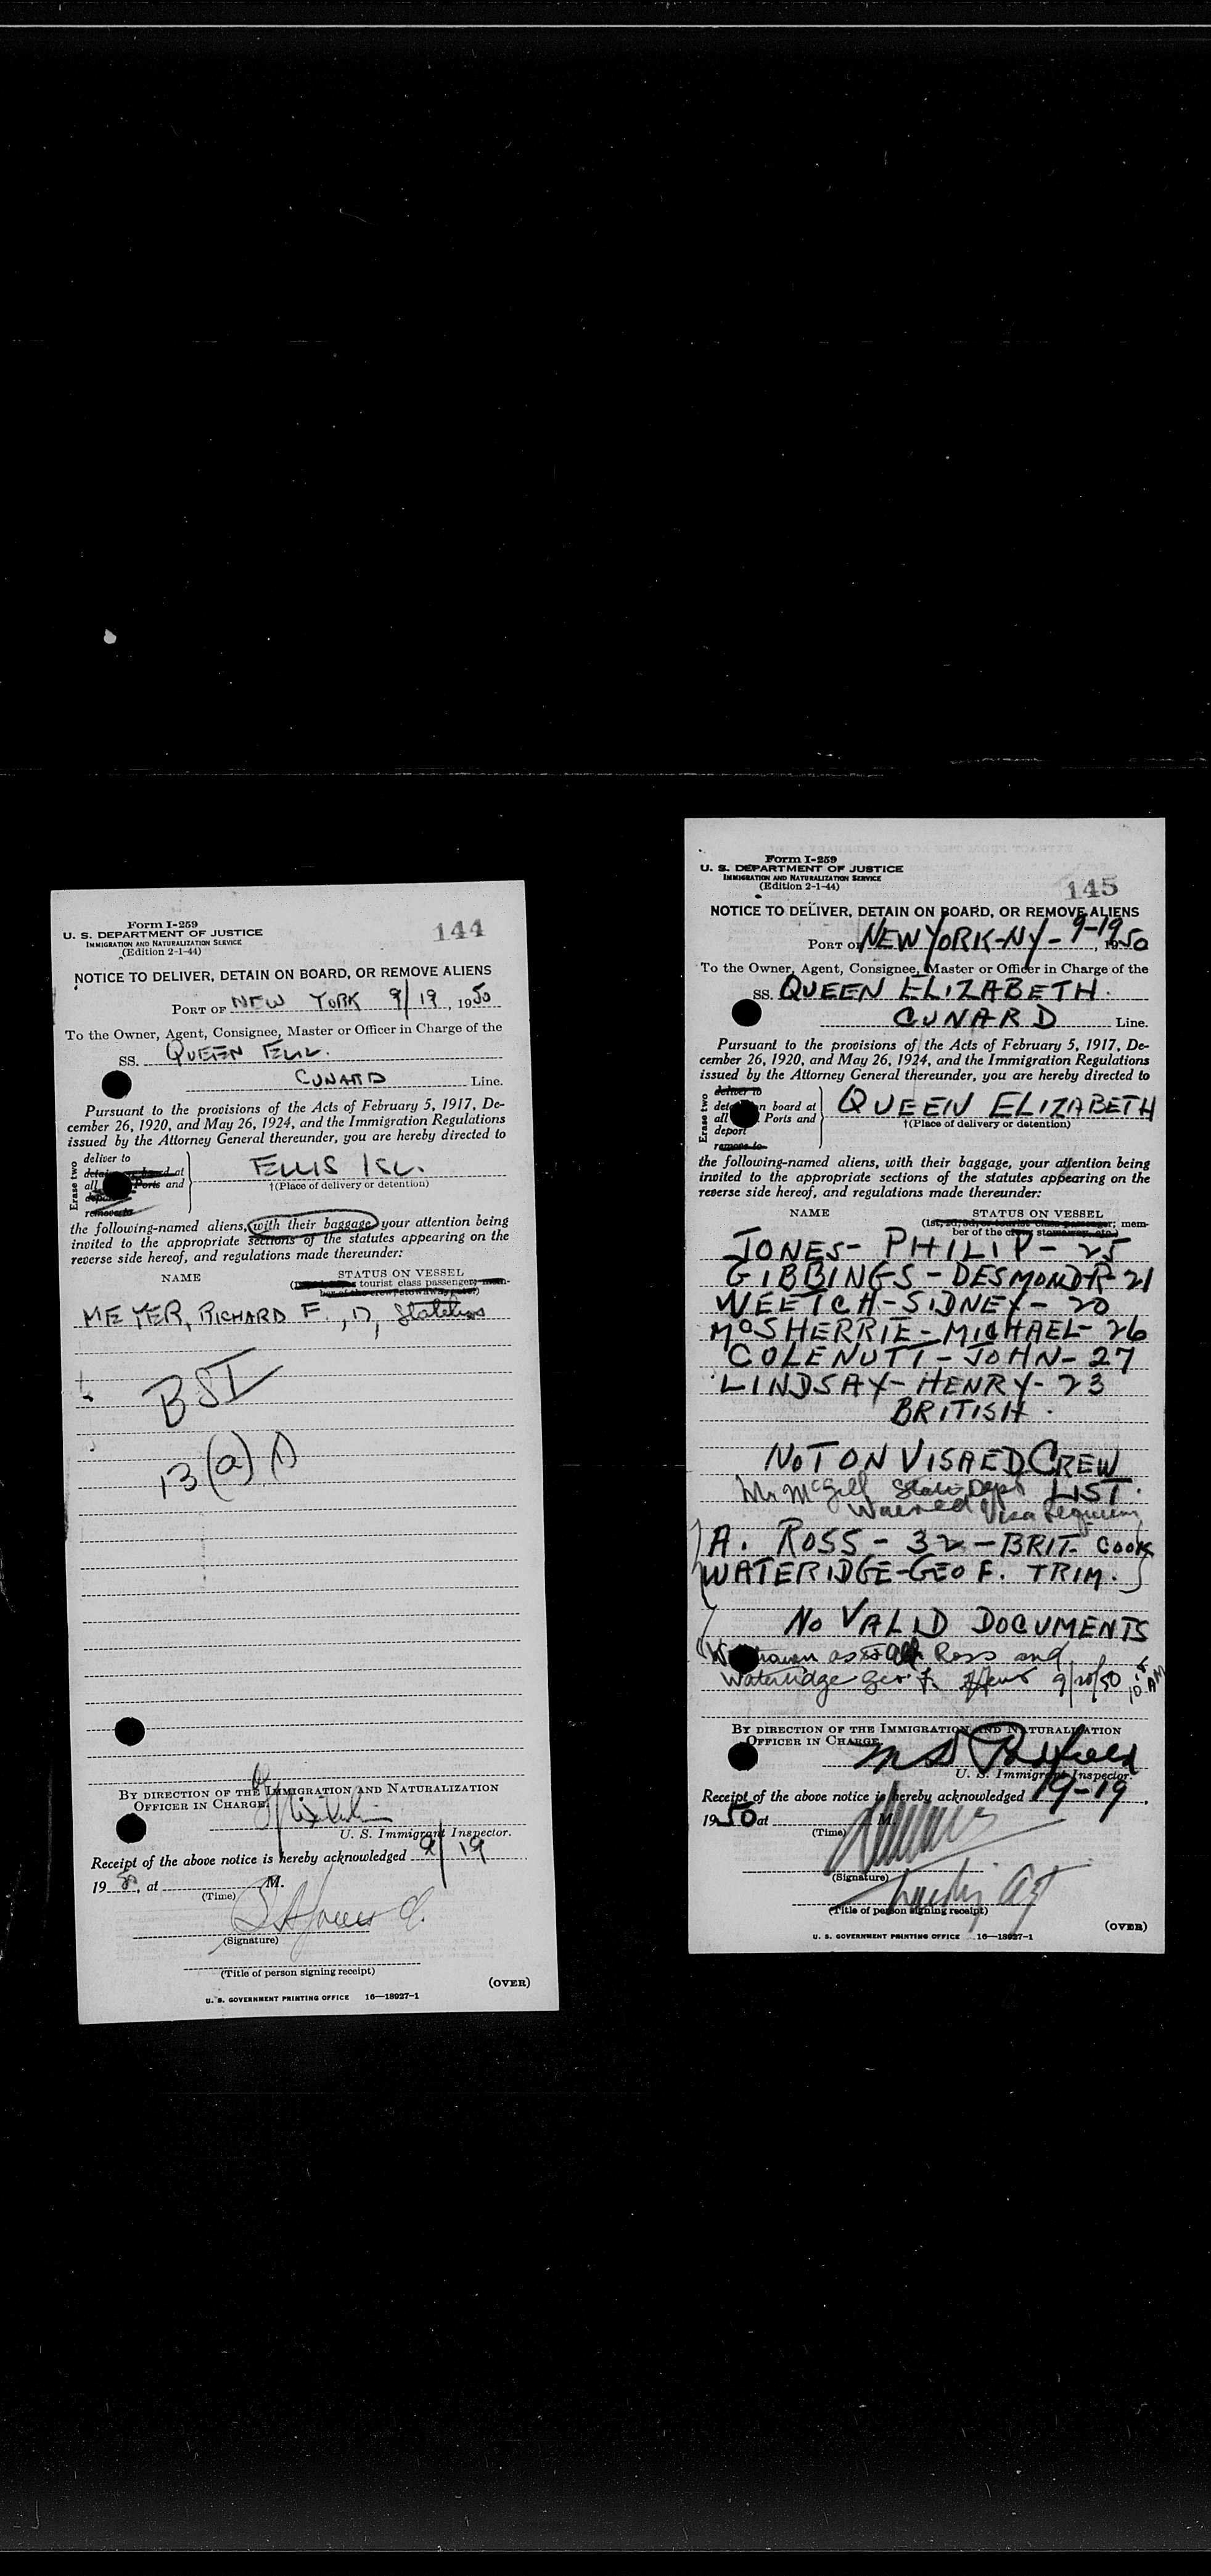 Form I-259
U. S. DEPARTMENT OF JUSTICE
IMMIGRATION AND NATURALIZATION SERVICE
(Edition 2-1-44)
144
NOTICE TO DELIVER, DETAIN ON BOARD, OR REMOVE ALIENS
PORT OF NEW YORK 9/19, 1950
To the Owner, Agent, Consignee, Master or Officer in Charge of the
SS. QUEEN ELIZ.
CUNARD Line.
Pursuant to the provisions of the Acts of February 5, 1917, De-
cember 26, 1920, and May 26, 1924, and the Immigration Regulations
issued by the Attorney General thereunder, you are hereby directed to
Erase two
deliver to
detain on board at
all Ports and
deport
remove to
ELLIS ISL.
†(Place of delivery or detention)
the following-named aliens, with their baggage, your attention being
invited to the appropriate sections of the statutes appearing on the
reverse side hereof, and regulations made thereunder:
NAME STATUS ON VESSEL
tourist class passenger; mem-
ber of the crew; stowaway, etc.)
MEYER, RICHARD F., 17, Stateless
BSI
13(a)(1)
BY DIRECTION OF THE IMMIGRATION AND NATURALIZATION
OFFICER IN CHARGE,
U. S. Immigrant Inspector.
Receipt of the above notice is hereby acknowledged 9/19
19 , at M.
(Time)
(Signature)
(Title of person signing receipt)
(OVER)
U. S. GOVERNMENT PRINTING OFFICE 16—18927-1
Form I-259
U. S. DEPARTMENT OF JUSTICE
IMMIGRATION AND NATURALIZATION SERVICE
(Edition 2-1-44)
145
NOTICE TO DELIVER, DETAIN ON BOARD, OR REMOVE ALIENS
PORT OF NEW YORK-NY-9-19, 1950
To the Owner, Agent, Consignee, Master or Officer in Charge of the
SS. QUEEN ELIZABETH.
CUNARD Line.
Pursuant to the provisions of the Acts of February 5, 1917, De-
cember 26, 1920, and May 26, 1924, and the Immigration Regulations
issued by the Attorney General thereunder, you are hereby directed to
Erase two
deliver to
detain on board at
all Ports and
deport
remove to
QUEEN ELIZABETH
†(Place of delivery or detention)
the following-named aliens, with their baggage, your attention being
invited to the appropriate sections of the statutes appearing on the
reverse side hereof, and regulations made thereunder:
NAME STATUS ON VESSEL
(1st, 2d, 3d, or tourist class passenger; mem-
ber of the crew; stowaway, etc.)
JONES- PHILIP- 25
GIBBINGS - DESMOND-R-21
WEETCH-SIDNEY- 20
McSHERRIE-MICHAEL-26
COLENUTT-JOHN-27
LINDSAY-HENRY-23
BRITISH.
NOT ON VISAED CREW
LIST.
Mr McGill State Dept
Waived Visa
A. ROSS-32-BRIT. COOK
WATERIDGE-GEO F. TRIM.
NO VALID DOCUMENTS
Withdrawn as to Ross and
Wateridge Geo. F. 9/20/50 10 AM
BY DIRECTION OF THE IMMIGRATION AND NATURALIZATION
OFFICER IN CHARGE,
U. S. Immigrant Inspector.
Receipt of the above notice is hereby acknowledged 9-19,
1950 at M.
(Time)
(Signature)
(Title of person signing receipt)
(OVER)
U. S. GOVERNMENT PRINTING OFFICE 16—18927-1